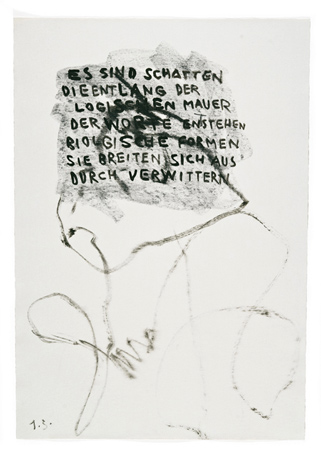 ES SIND SCHATTEN
DIE ENTLANG DER
LOGISCHEN MAUER
DER WORTE ENTSTEHEN
BIOLGISCHE FORMEN
SIE BREITEN SICH AUS
DURCH VERWITTERN
1.3.